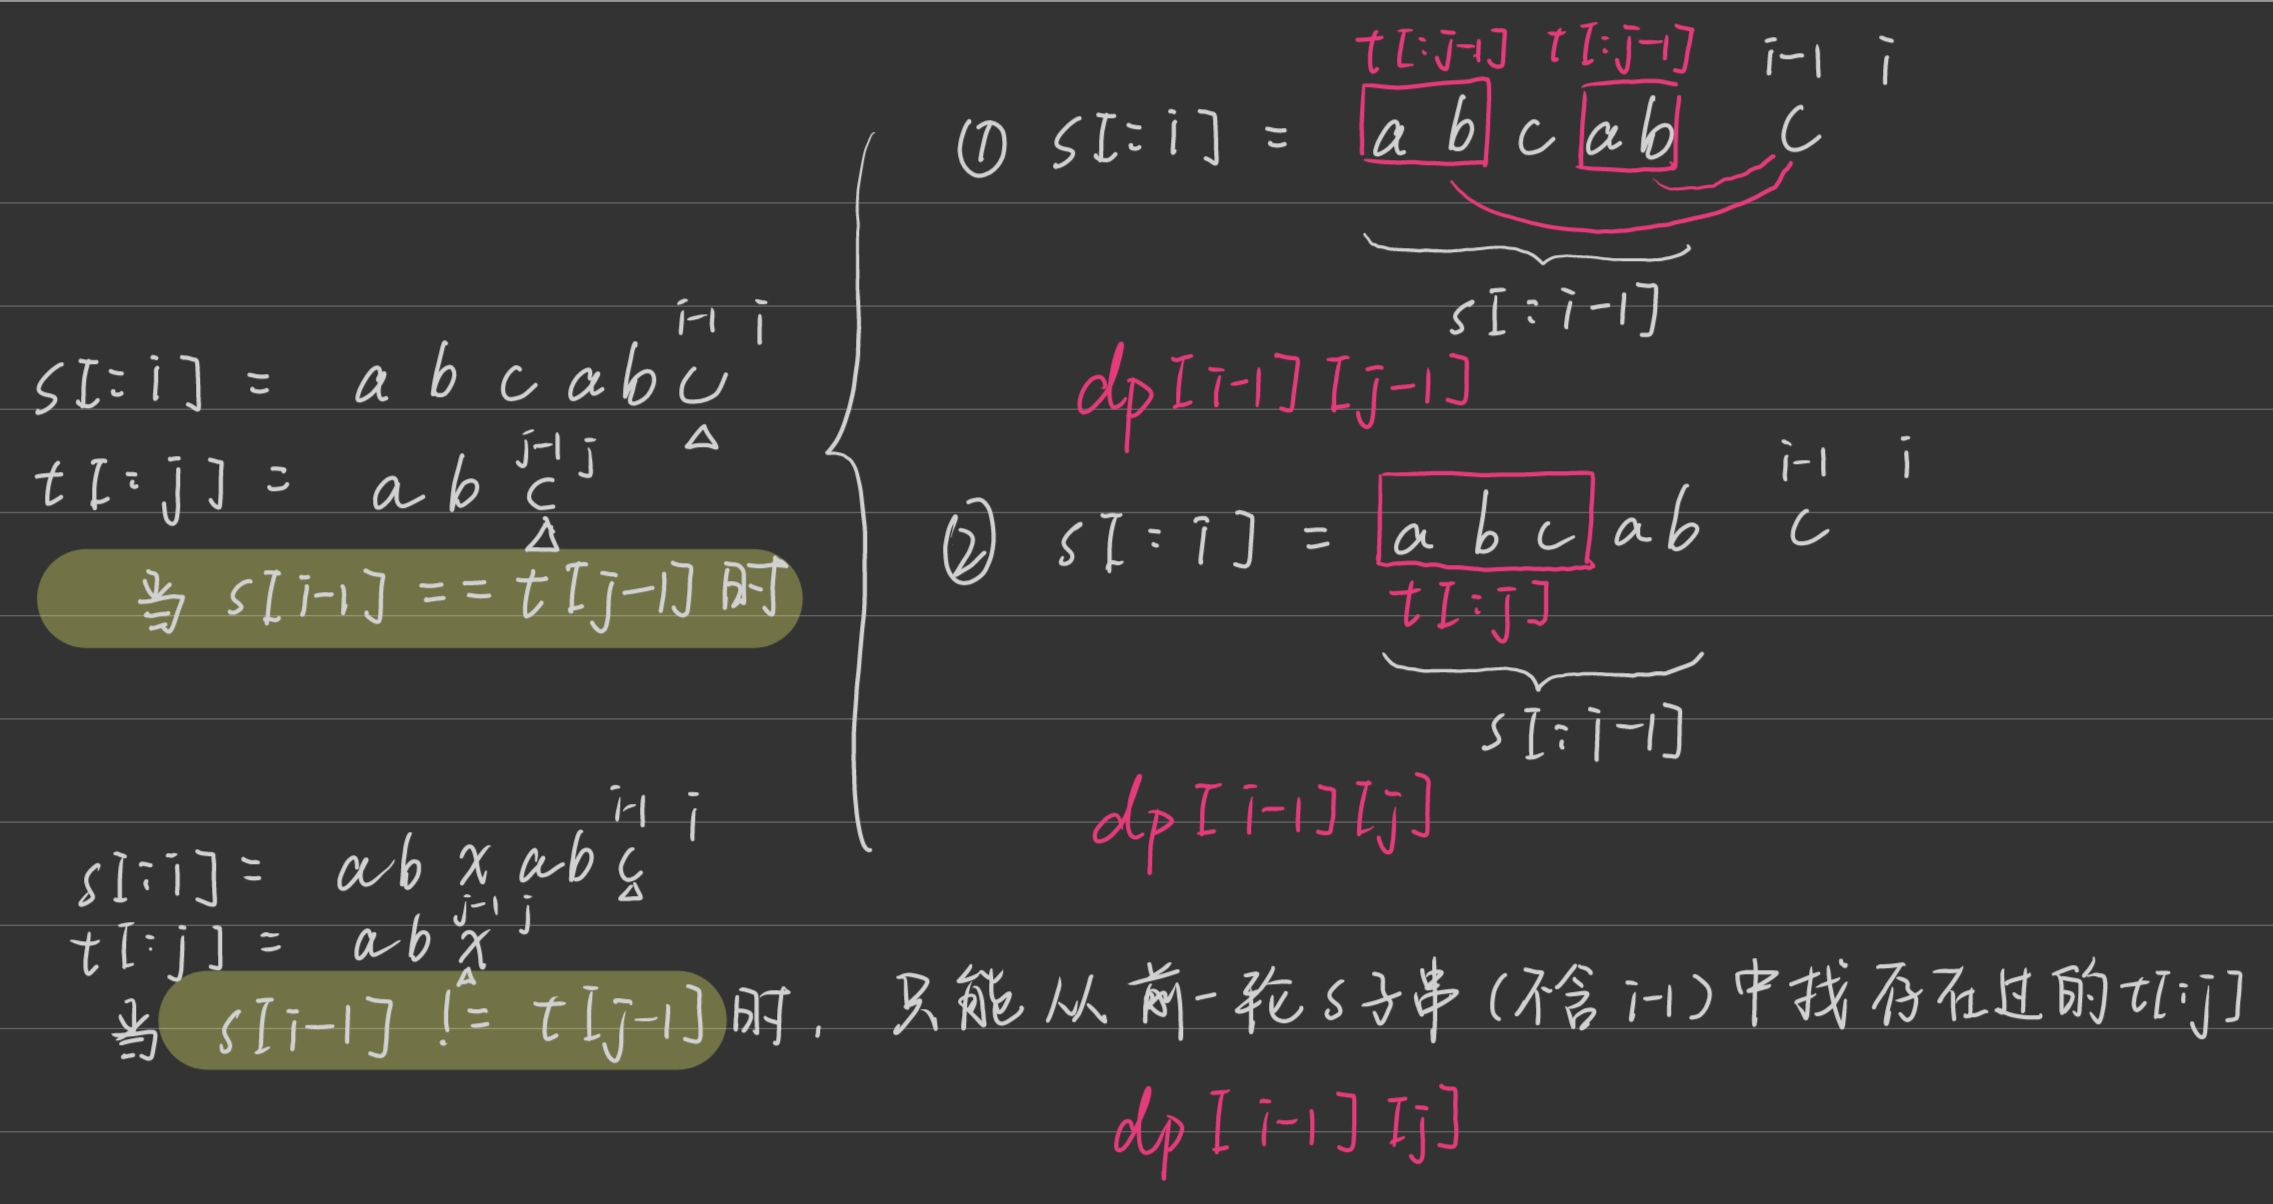 s[:i] = a b c a b c
i-1 i
t[:j] = a b c
j-1 j
当 s[i-1] == t[j-1] 时
t[:j-1] t[:j-1] i-1 i
① s[:i] = a b c a b c
s[:i-1]
dp[i-1][j-1]
i-1 i
② s[:i] = a b c a b c
t[:j]
s[:i-1]
dp[i-1][j]
i-1 i
s[:i] = a b x a b c
j-1 j
t[:j] = a b x
当 s[i-1] != t[j-1] 时, 只能从前一轮s子串(不含i-1)中找存在过的t[:j]
dp[i-1][j]